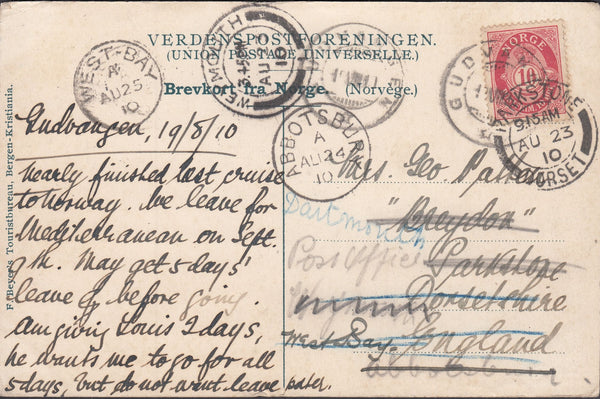 VERDENSPOSTFORENINGEN.
(UNION POSTALE UNIVERSELLE.)
Brevkort fra Norge. (Norvège.)
WEST-BAY
A
AU 25
10
WEYMOUTH
AU
10
ABBOTSBURY
A
AU 24
10
GUDV
NORGE
10
PARKSTONE
9.15AM
AU 23
10
DORSET
F. Beyer's Touristbureau, Bergen-Kristiania.
Gudvangen, 19/8/10
Nearly finished last cruise
to Norway. We leave for
Mediterranean on Sept.
9th. May get 5 days'
leave & before going.
Am giving Louis 2 days,
he wants me to go for all
5 days, but do not want leave later.
Mrs. Geo
Dartmouth
"Breydon"
Post Office
Parkstone
Dorsetshire
West Bay
England